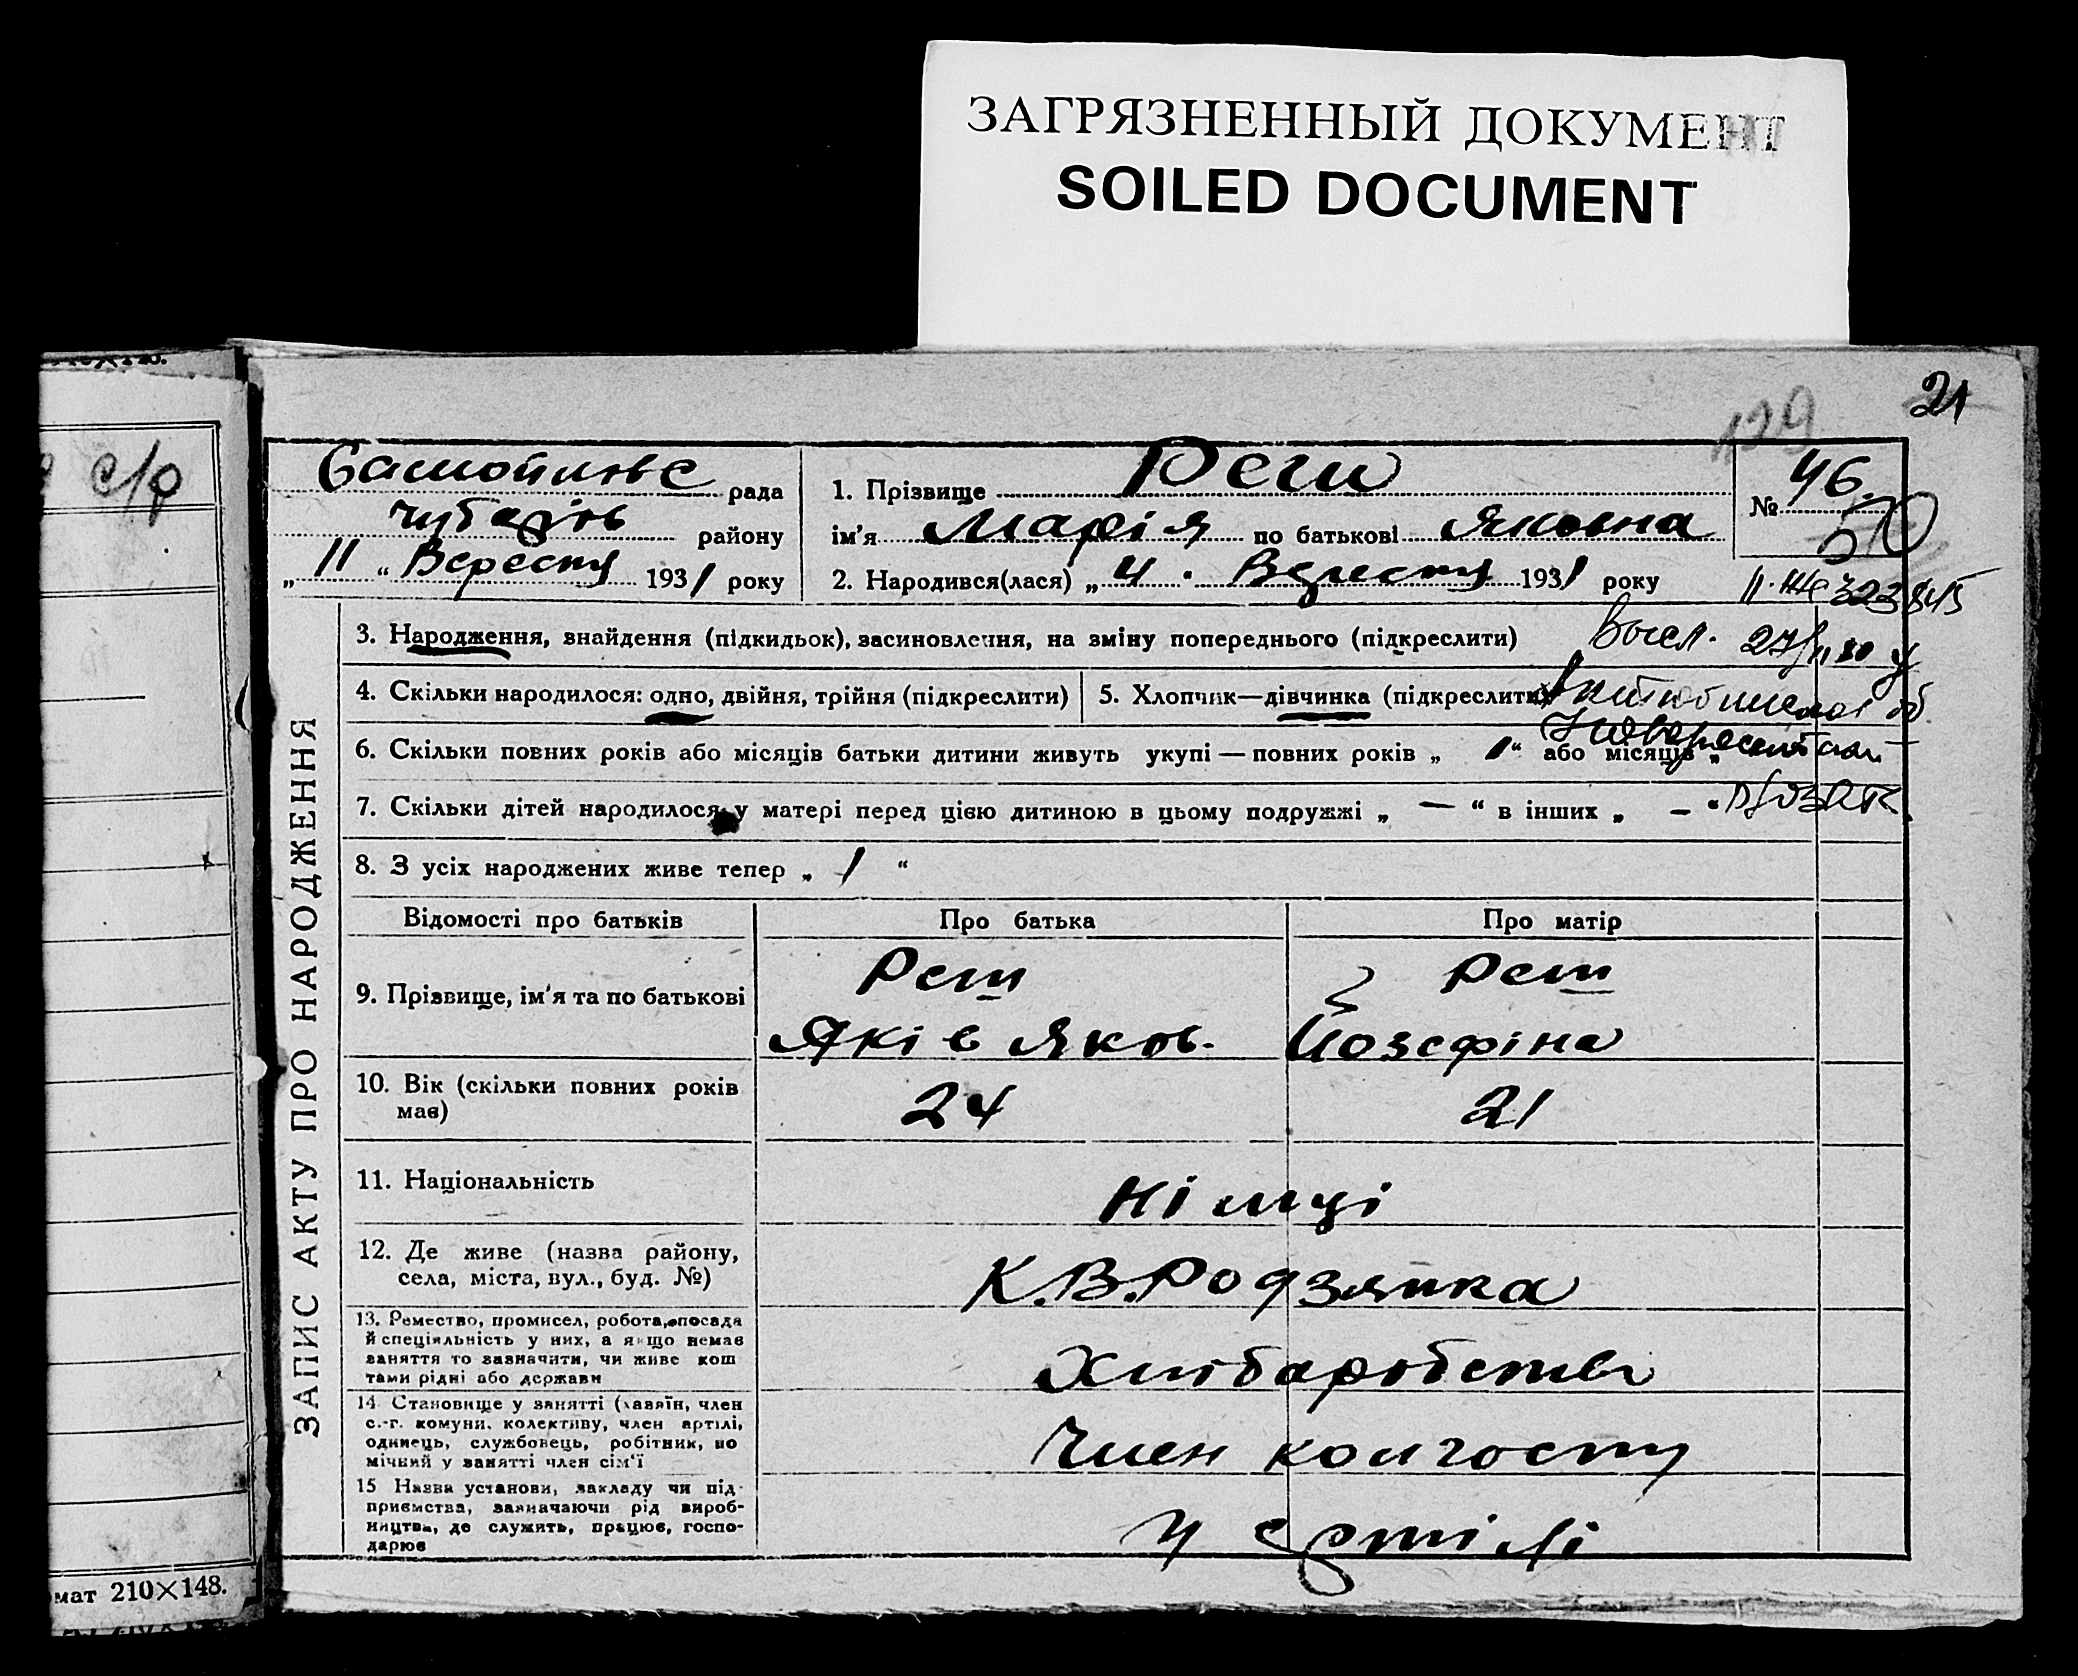 ЗАГРЯЗНЕННЫЙ ДОКУМЕНТ
SOILED DOCUMENT
21
129
с/р
рада
Чубарів району
„ 11 “ Вересня 1931 року
1. Прізвище Реш
ім'я Марія по батькові Яковна
2. Народився(лася) „ 4 . Вересня 1931 року
№ 46.
50
II
323815
3. Народження, знайдення (підкидьок), засиновлення, на зміну попереднього (підкреслити)
4. Скільки народилося: одно, двійня, трійня (підкреслити)
5. Хлопчик—дівчинка (підкреслити)
6. Скільки повних років або місяців батьки дитини живуть укупі — повних років „ 1 “ або місяців „
7. Скільки дітей народилося у матері перед цією дитиною в цьому подружжі „ — “ в інших „ — “
8. З усіх народжених живе тепер „ 1 “
ЗАПИС АКТУ ПРО НАРОДЖЕННЯ
Відомості про батьків
Про батька
Про матір
9. Прізвище, ім'я та по батькові
Реш
Яків Яков.
Реш
Йозефіна
10. Вік (скільки повних років
має)
24
21
11. Національність
Німці
12. Де живе (назва району,
села, міста, вул., буд. №)
К.В.Родзянка
13. Ремество, промисел, робота, посада
й спеціяльність у них, а якщо немає
заняття то зазначити, чи живе кош
тами рідні або держави
Хліборобство
14. Становище у занятті (хазяїн, член
с.-г. комуни, колективу, член артілі,
одинець, службовець, робітник, по
мічний у занятті член сім'ї
Член колгоспу
15 Назва установи, закладу чи під-
приємства, зазначаючи рід вироб-
ництва, де служить, працює, госпо-
дарює
У артілі
мат 210×148.